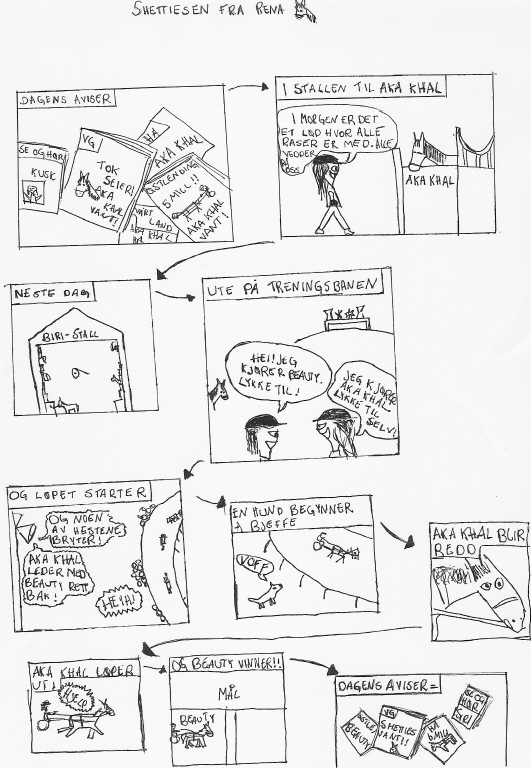 SHETTIESEN FRA RENA
DAGENS AVISER
SE OG HØR
KUSK
VG
TOK
SEIER!
AKA
KHAL
VANT!
HA
AKA KHAL
ØSTLENDINGEN
5 MILL!!
AKA KHAL
VANT!
VÅRT
LAND
AKA
KHAL
I STALLEN TIL AKA KHAL
I MORGEN ER DET
ET LØP HVOR ALLE
RASER ER MED. ALLE
VEDDER
PÅ
OSS!
AKA KHAL
NESTE DAG
BIRI-STALL
UTE PÅ TRENINGSBANEN
HEI! JEG
KJØRER BEAUTY.
LYKKE TIL!
JEG KJØRER
AKA KHAL.
LYKKE TIL
SELV!
OG LØPET STARTER
OG NOEN
AV HESTENE
BRYTER!
AKA KHAL
LEDER MED
BEAUTY RETT
BAK!
HEYA!
EN HUND BEGYNNER
Å BJEFFE
VOFF
AKA KHAL BLIR
REDD
AKA KHAL LØPER
UT!
HJELP
OG BEAUTY VINNER!!
MÅL
BEAUTY
DAGENS AVISER=
BEAUTY
VG
SHETTIS
VANT!!
SE OG
HØR